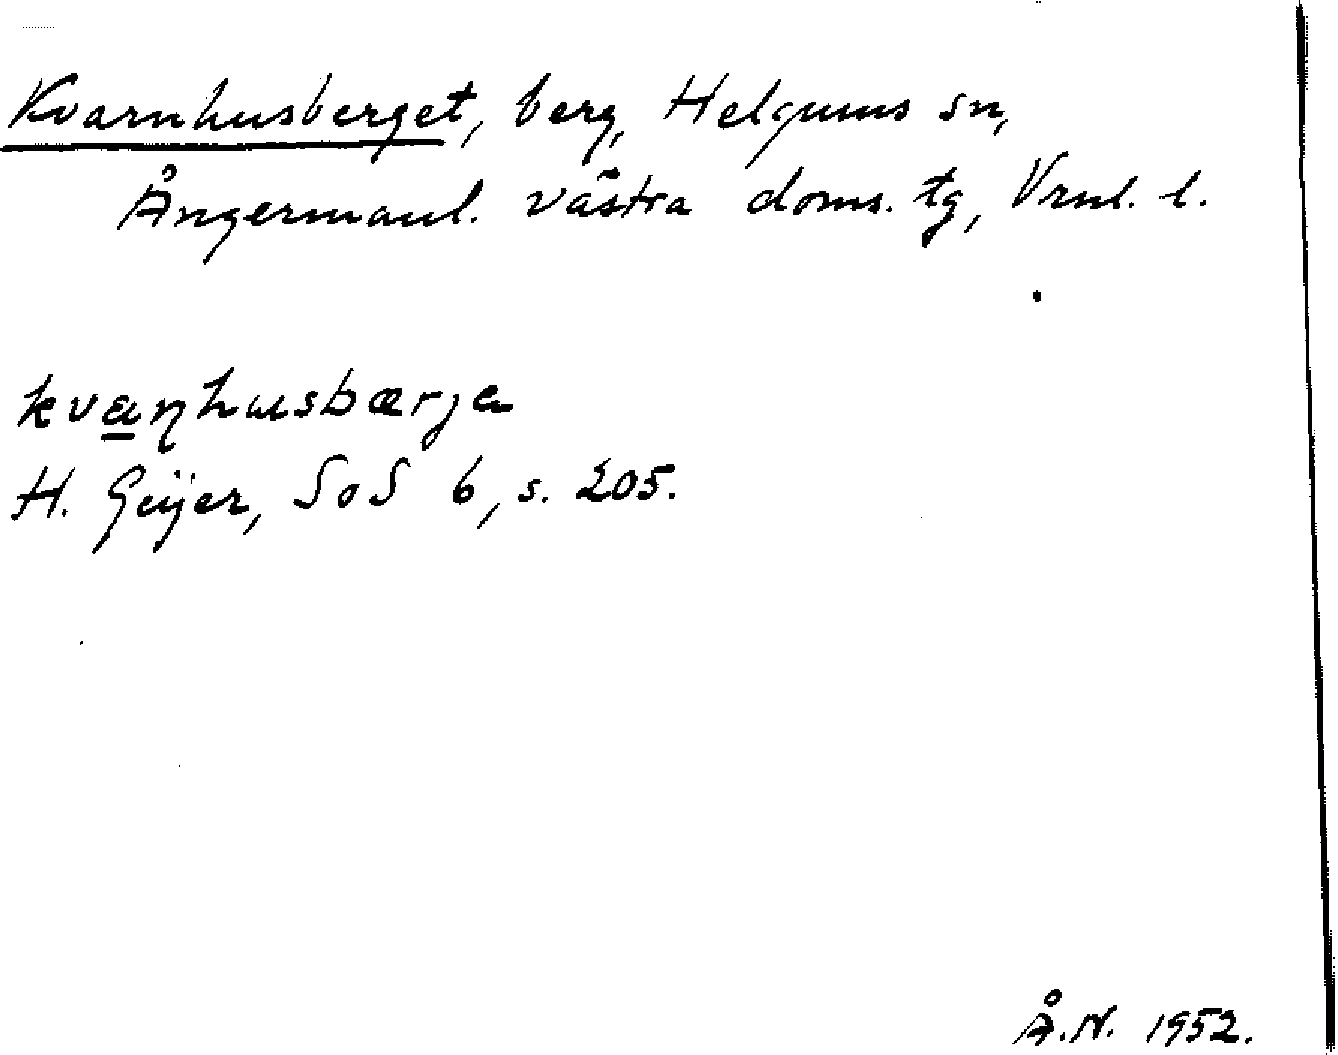 Kvarnhusberget, berg, Helgums sn,
Ångermanl. västra doms. tg, Vrnl. l.
kvaɳhusbærja
H. Geijer, SoS 6, s. 205.
Å.N. 1952.